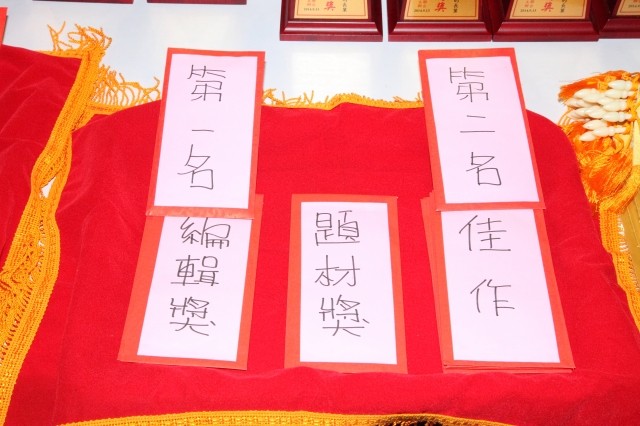 第一名
第二名
編輯獎
題材獎
佳作
獎
獎
獎